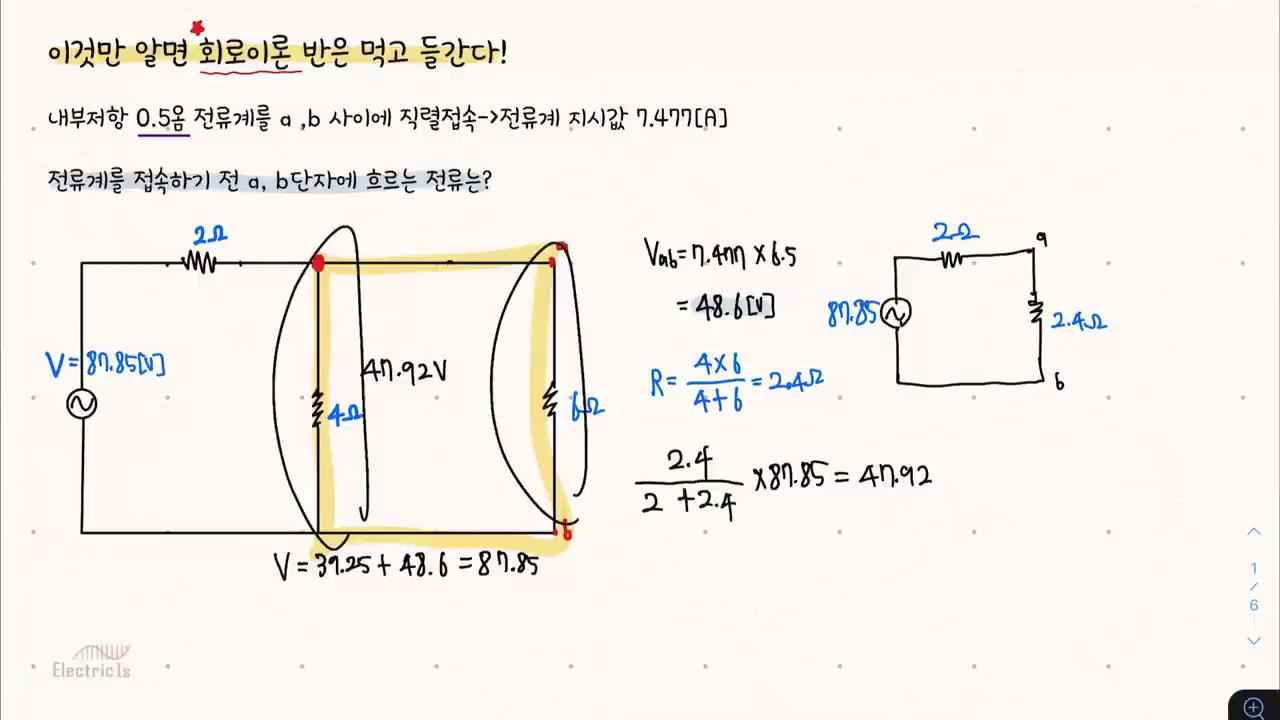 이것만 알면 회로이론 반은 먹고 들간다!
내부저항 0.5옴 전류계를 a ,b 사이에 직렬접속->전류계 지시값 7.477[A]
전류계를 접속하기 전 a, b단자에 흐르는 전류는?
2Ω
a
V= 87.85[V]
4Ω
47.92V
6Ω
b
V = 39.25 + 48.6 = 87.85
Vab = 7.477 × 6.5
= 48.6[V]
R = 4×6 / 4+6 = 2.4Ω
2.4 / 2 + 2.4 × 87.85 = 47.92
2Ω
a
87.85
2.4Ω
b
1
/
6
Electric Is